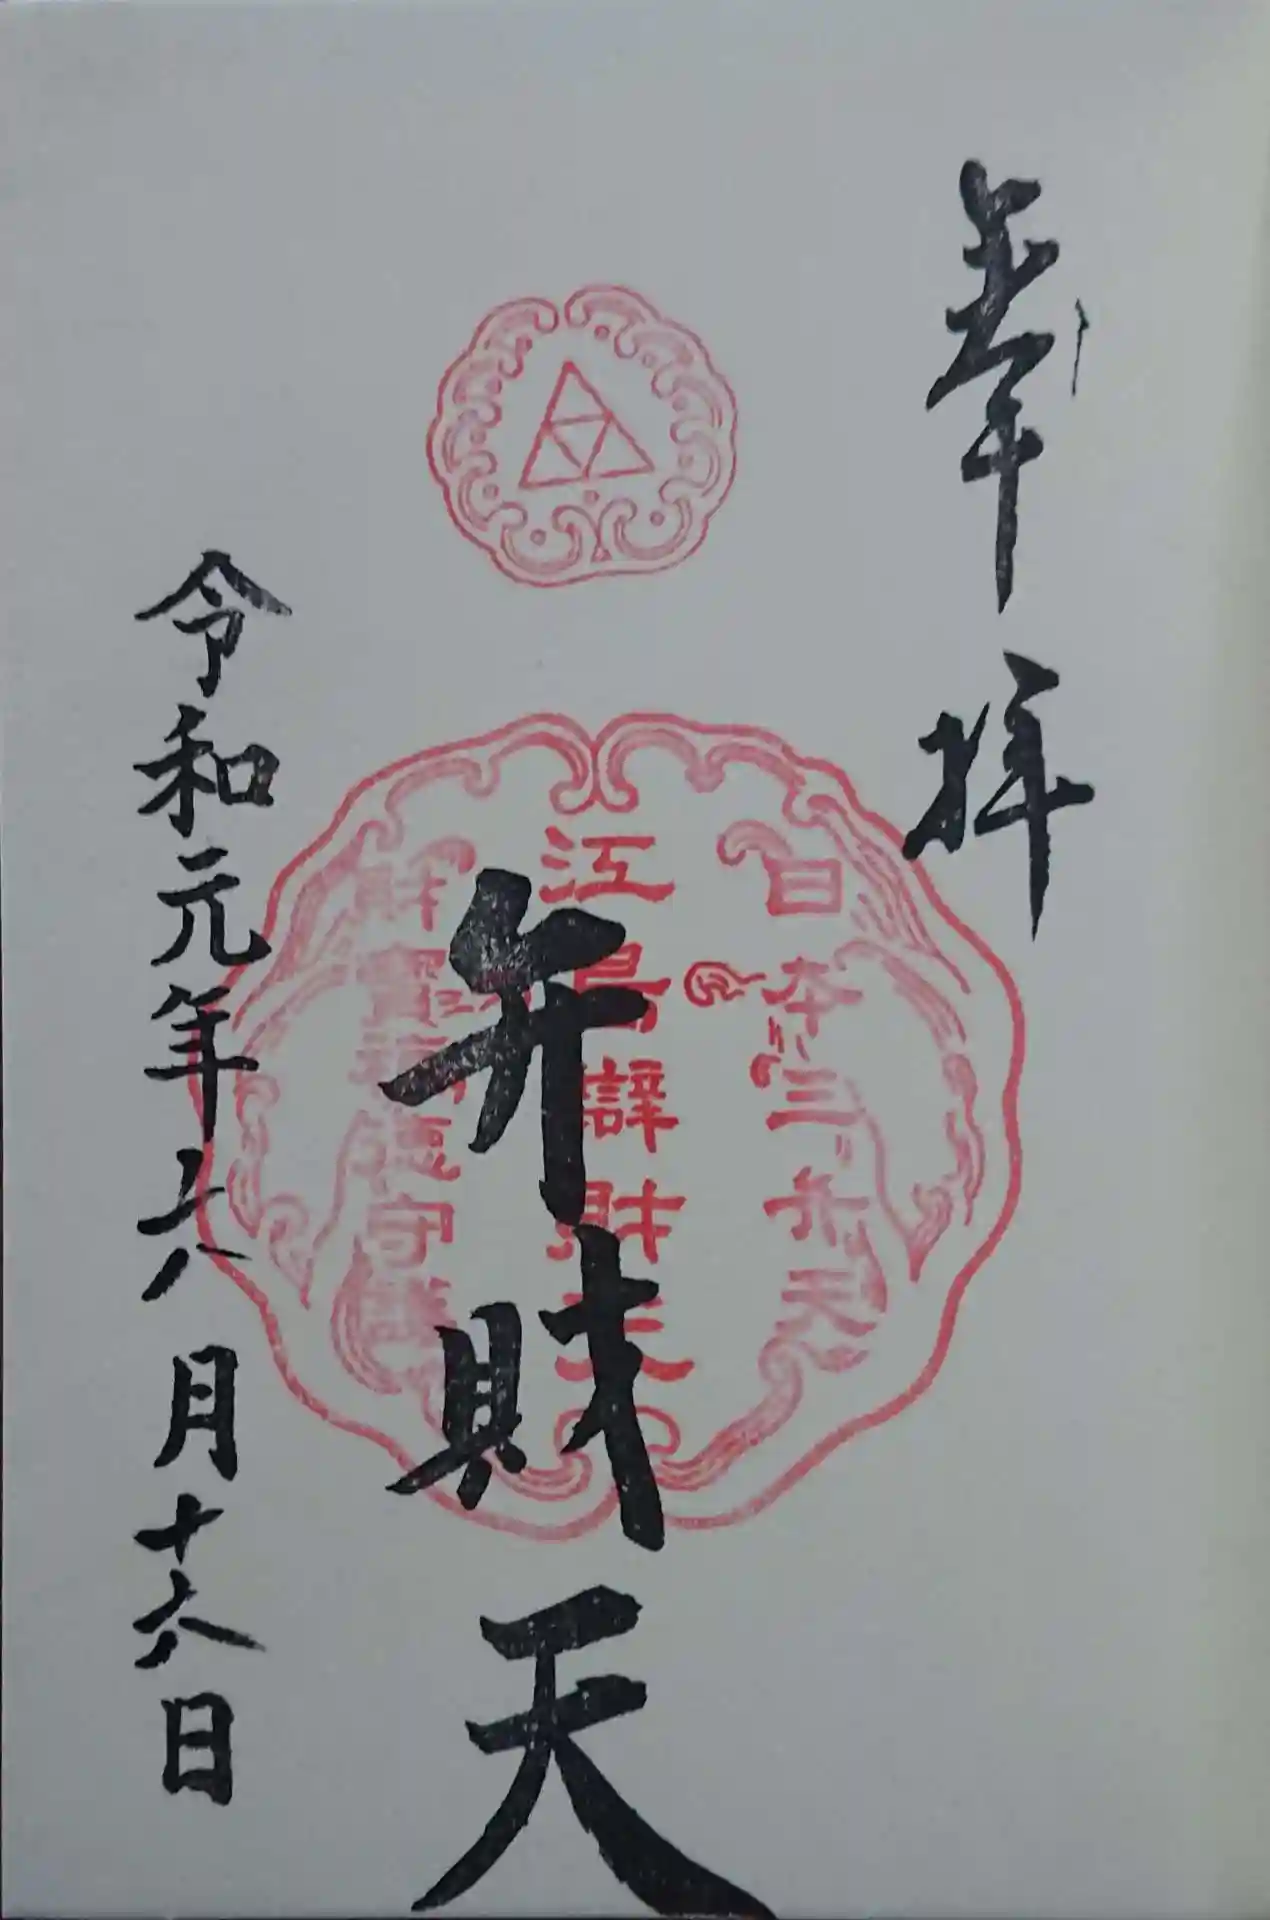 奉拝
日本三弁天
江島辯財天
財寶福徳守護
弁財天
令和元年六月十六日